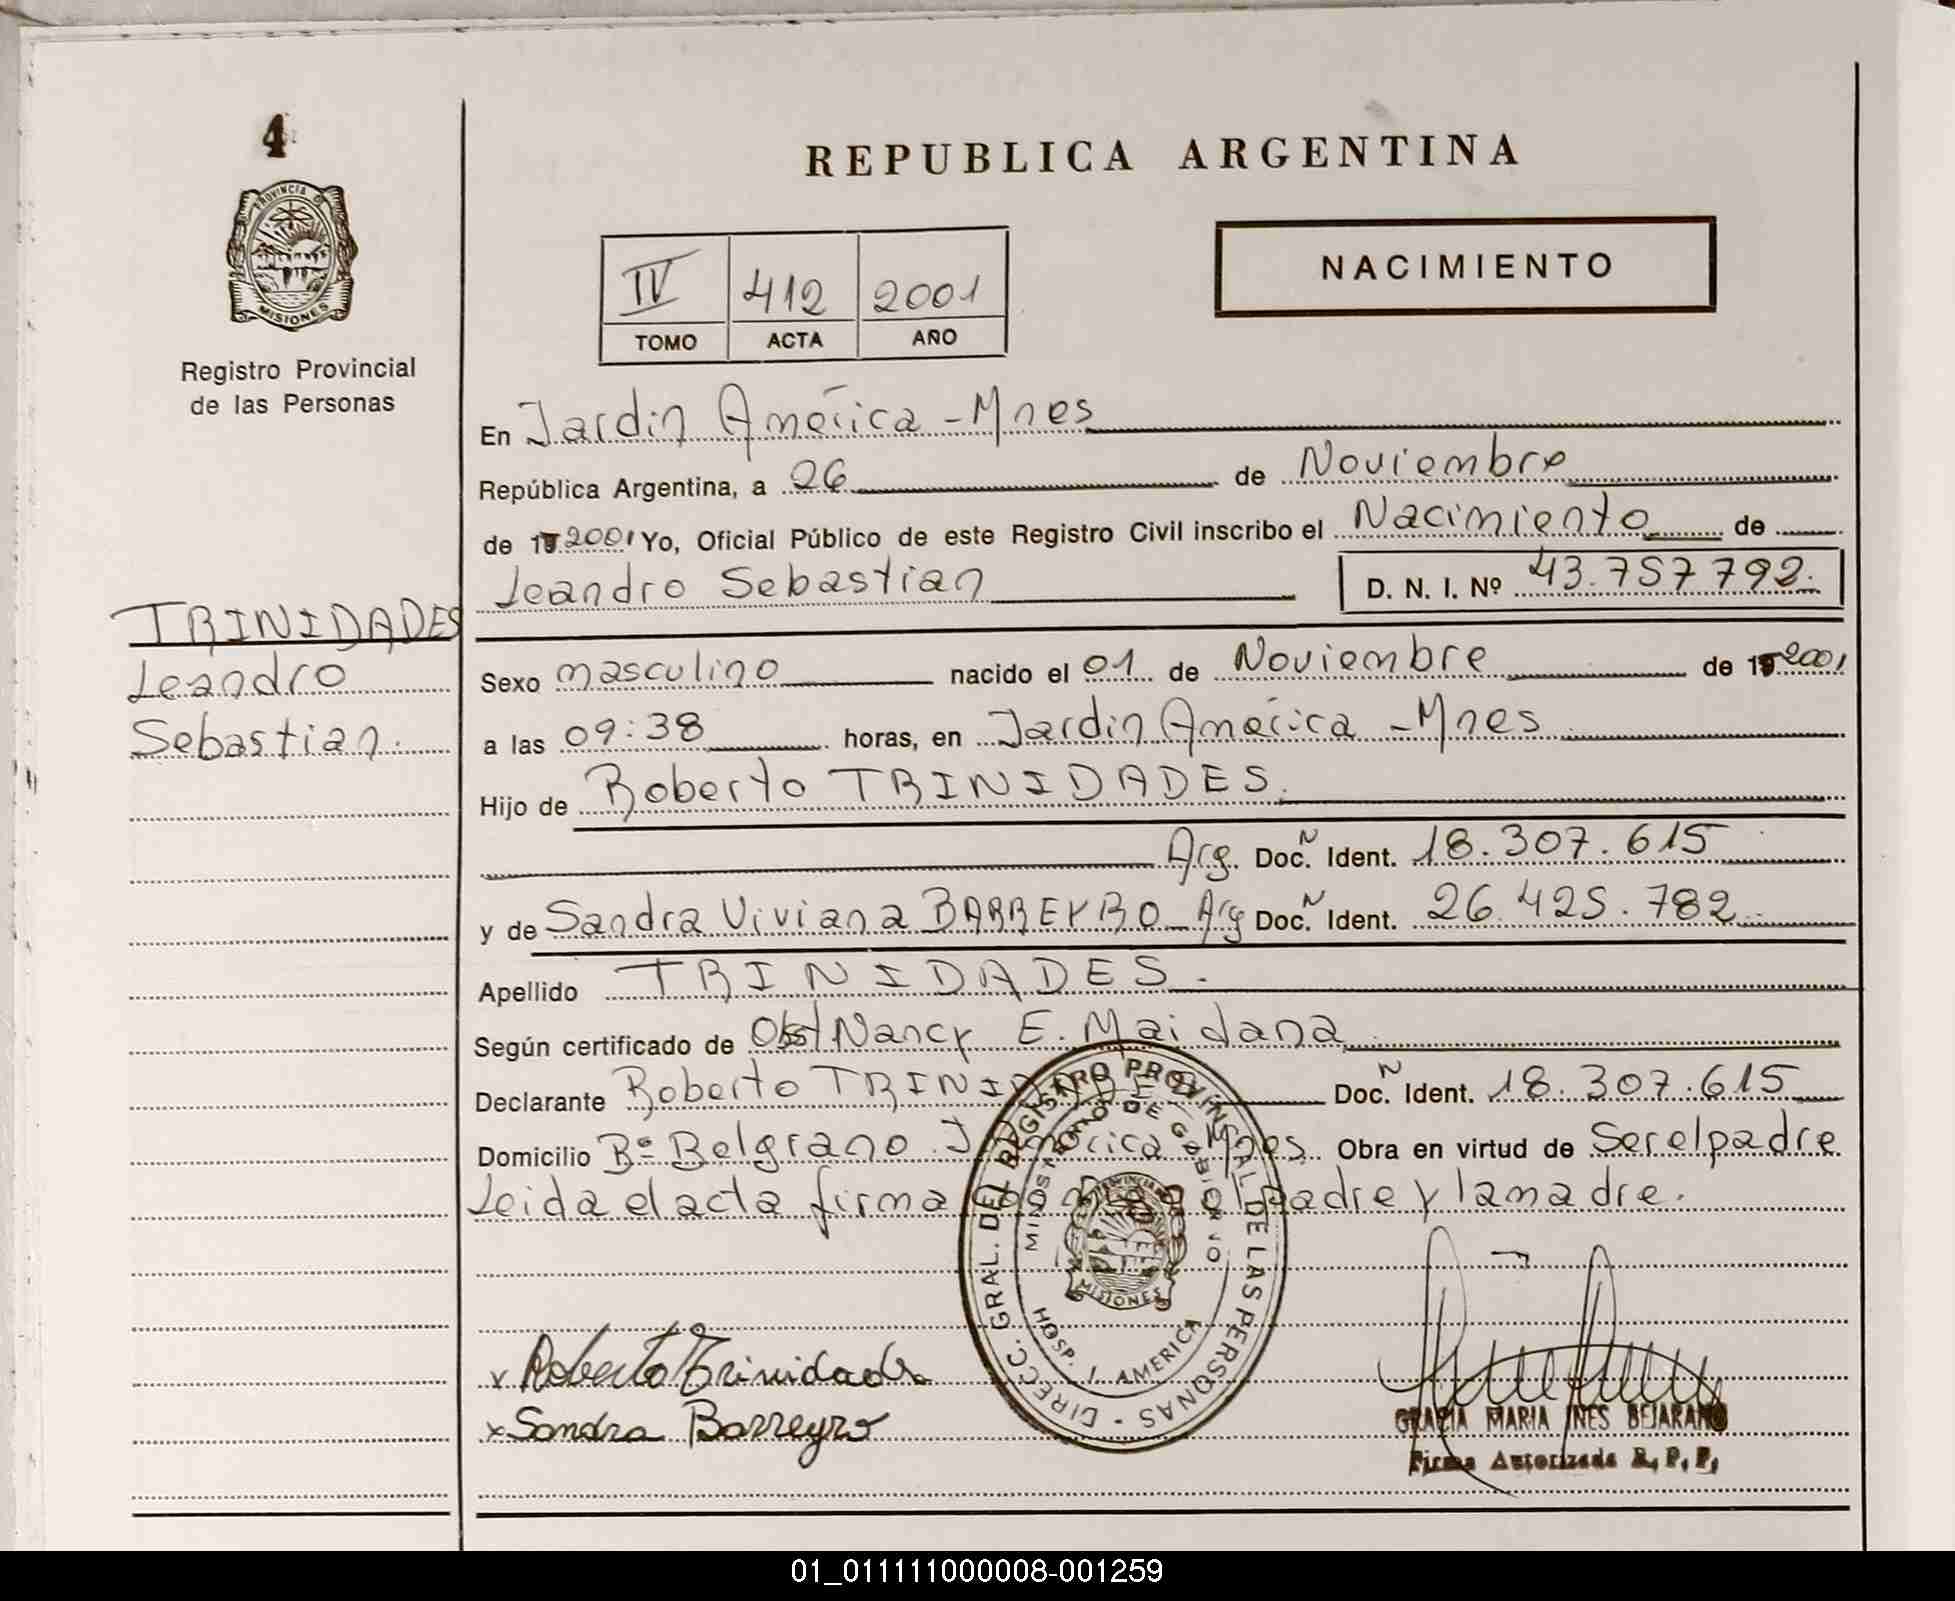 4
PROVINCIA DE
MISIONES
Registro Provincial
de las Personas
REPUBLICA ARGENTINA
IV 412 2001
TOMO ACTA AÑO
NACIMIENTO
En Jardin América - Mnes
República Argentina, a 26 de Noviembre
de 19 2001 Yo, Oficial Público de este Registro Civil inscribo el Nacimiento de
Leandro Sebastian D. N. I. Nº 43.757792.
TRINIDADES
Leandro
Sebastian.
Sexo masculino nacido el 01 de Noviembre de 19 2001
a las 09:38 horas, en Jardin América - Mnes
Hijo de Roberto TRINIDADES.
Arg. Doc. N Ident. 18.307.615
y de Sandra Viviana BARREYRO Arg Doc. N Ident. 26.425.782
Apellido TRINIDADES.
Según certificado de Obst Nancy E. Maidana
Declarante Roberto TRINIDADES Doc. N Ident. 18.307.615
Domicilio Bº Belgrano J. América Mnes Obra en virtud de Ser el padre
Leida el acta firma el padre y la madre.
DIRECC. GRAL. DEL REGISTRO PROVINCIAL DE LAS PERSONAS
MINISTERIO DE GOBIERNO
PROVINCIA DE
MISIONES
HOSP. J. AMERICA
x Roberto Trinidades
x Sandra Barreyro
GRACIA MARIA INES BEJARANO
Firma Autorizada R. P. P.
01_011111000008-001259